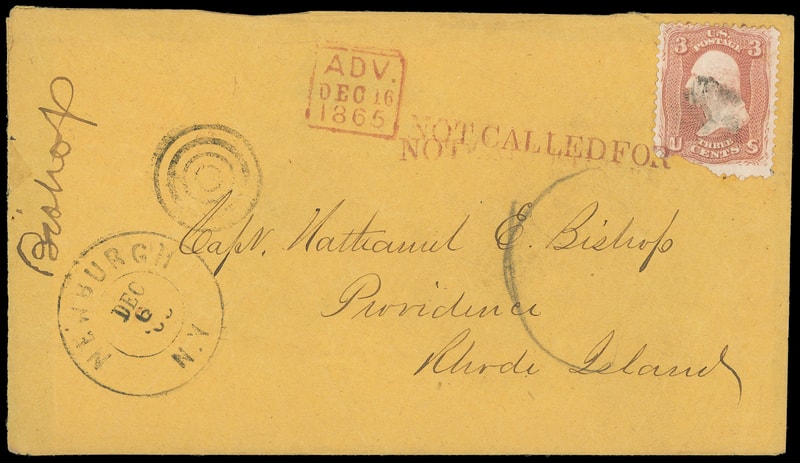 ADV.
DEC 16
1865
NOT CALLED FOR
NOT
3 U.S. 3
POSTAGE
U THREE S
CENTS
Bishop
NEWBURGH N.Y.
DEC
6
Capt. Nathaniel E. Bishop
Providence
Rhode Island